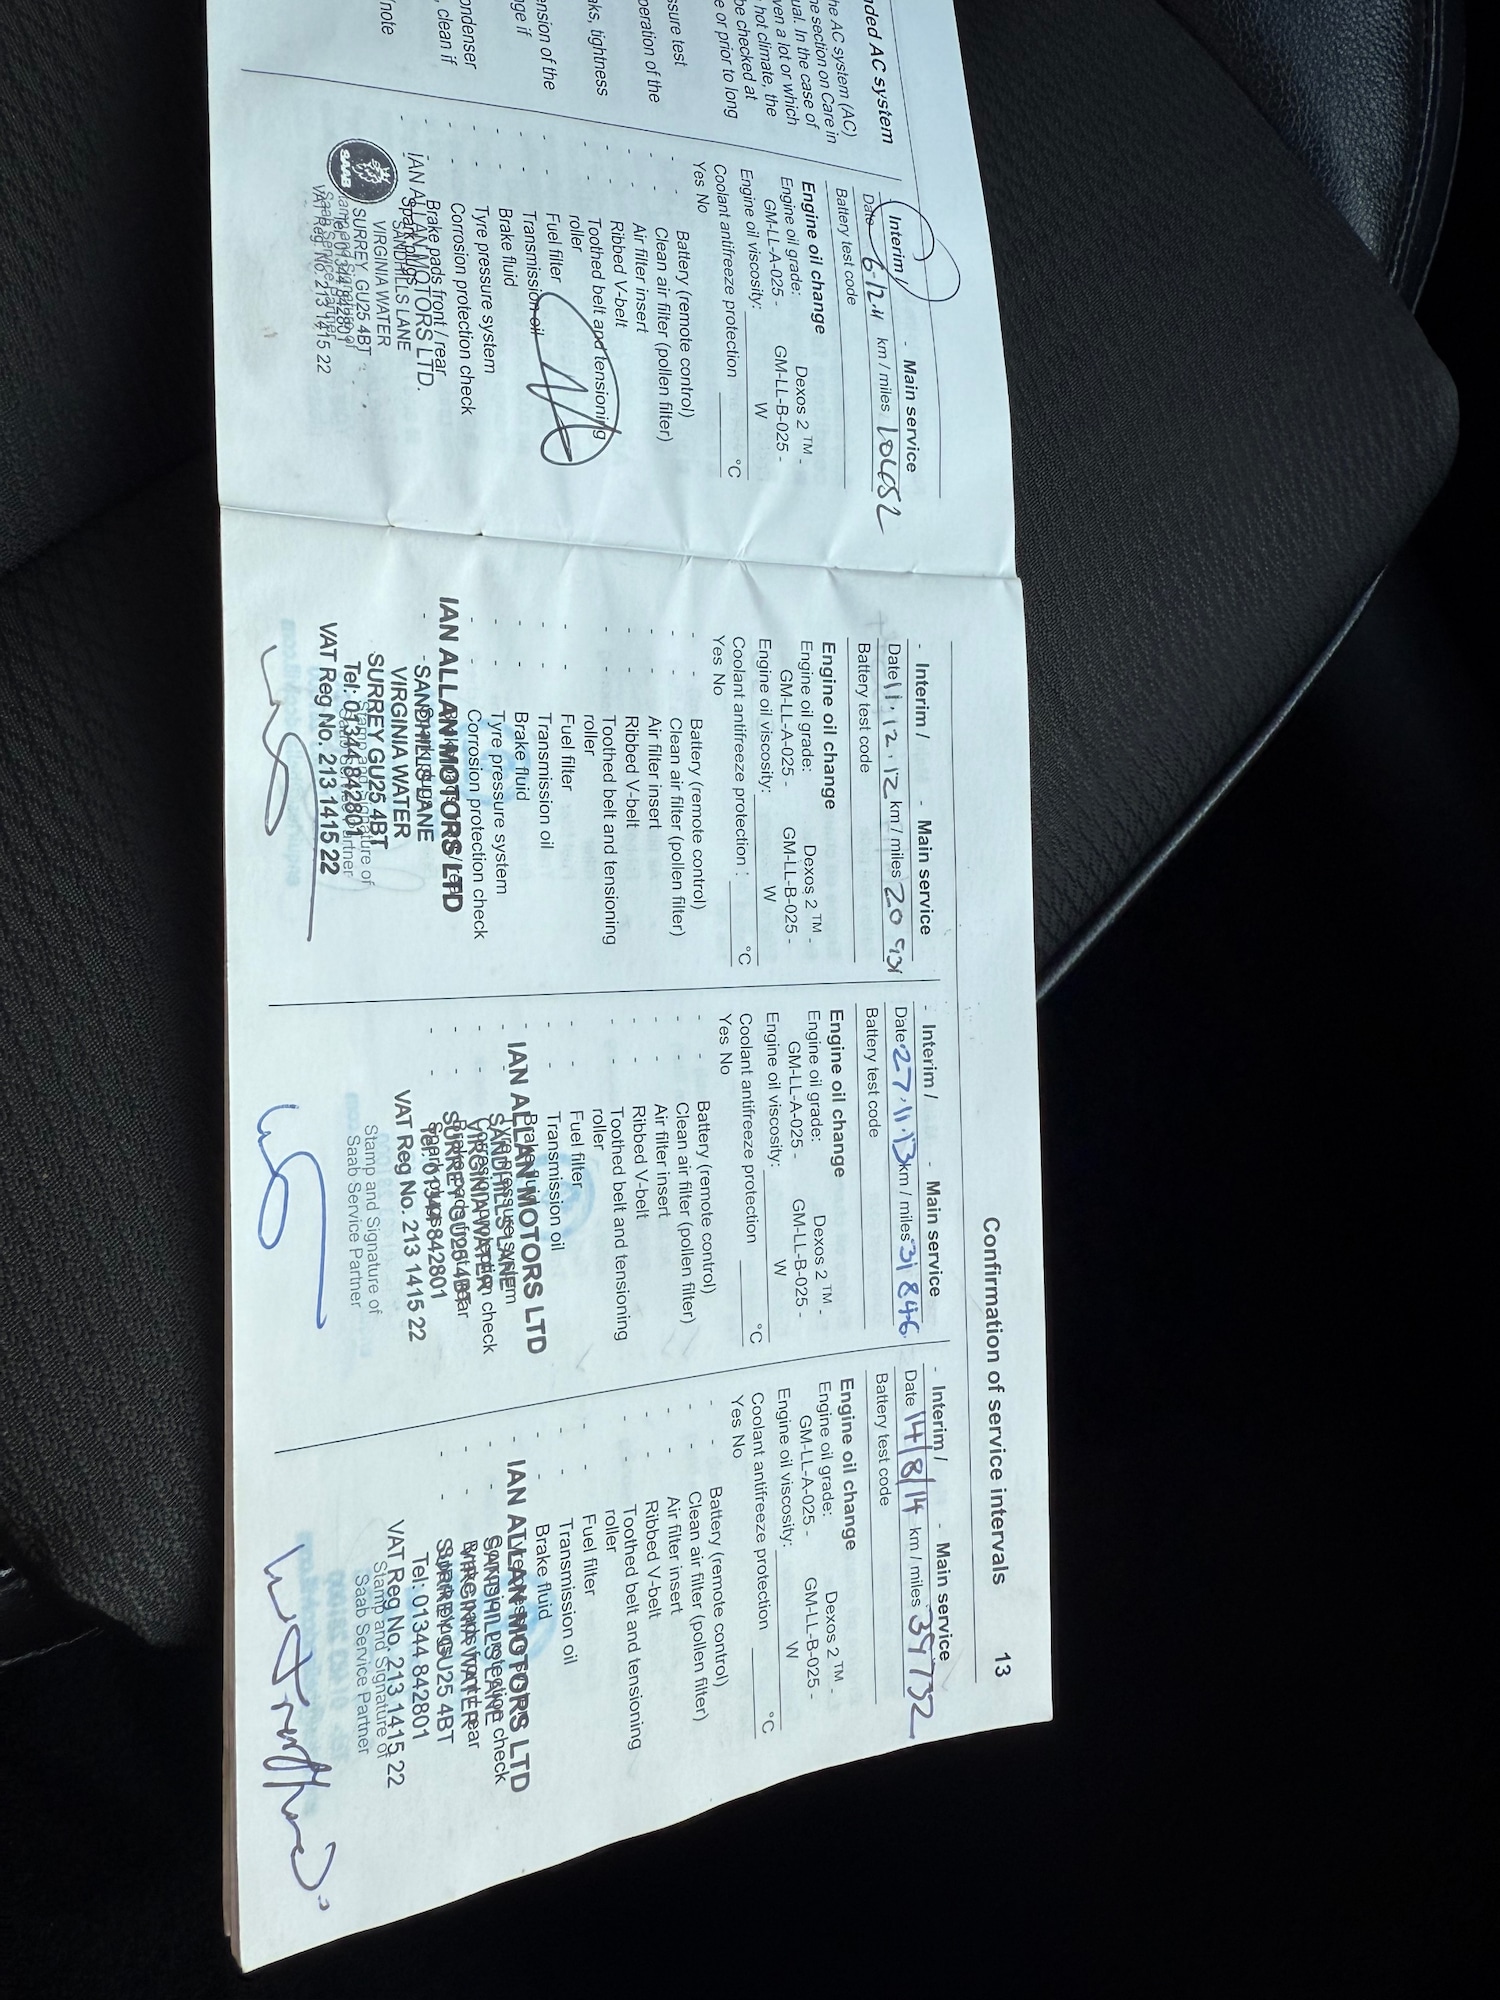 nded AC system
he AC system (AC)
he section on Care in
ual. In the case of
ven a lot or which
hot climate, the
be checked at
e or prior to long
sure test
peration of the
aks, tightness
ension of the
nge if
ondenser
, clean if
/note
Interim / - Main service
Date 6-12-11 km / miles
Battery test code
Engine oil change
Engine oil grade: Dexos 2 ™ -
GM-LL-A-025 - GM-LL-B-025 -
Engine oil viscosity: W
Coolant antifreeze protection °C
Yes No
- - Battery (remote control)
- - Clean air filter (pollen filter)
- - Air filter insert
- - Ribbed V-belt
- - Toothed belt and tensioning
roller
- - Fuel filter
- - Transmission oil
- - Brake fluid
- - Tyre pressure system
- - Corrosion protection check
- - Brake pads front / rear
- - Spark plugs
SAAB
IAN ALLAN MOTORS LTD.
SANDHILLS LANE
VIRGINIA WATER
SURREY GU25 4BT
Tel: 01344 842801
VAT Reg No. 213 1415 22
Stamp and Signature of
Saab Service Partner
Confirmation of service intervals 13
- Interim / - Main service
Date 11.12.12 km / miles 20 931
Battery test code
Engine oil change
Engine oil grade: Dexos 2 ™ -
GM-LL-A-025 - GM-LL-B-025 -
Engine oil viscosity: W
Coolant antifreeze protection : °C
Yes No
- - Battery (remote control)
- - Clean air filter (pollen filter)
- - Air filter insert
- - Ribbed V-belt
- - Toothed belt and tensioning
roller
- - Fuel filter
- - Transmission oil
- - Brake fluid
- - Tyre pressure system
- - Corrosion protection check
IAN ALLAN MOTORS LTD
SANDHILLS LANE
VIRGINIA WATER
SURREY GU25 4BT
Tel: 01344 842801
VAT Reg No. 213 1415 22
Stamp and Signature of
Saab Service Partner
- Interim / - Main service
Date 27.11.13 km / miles 31 846
Battery test code
Engine oil change
Engine oil grade: Dexos 2 ™ -
GM-LL-A-025 - GM-LL-B-025 -
Engine oil viscosity: W
Coolant antifreeze protection °C
Yes No
- - Battery (remote control)
- - Clean air filter (pollen filter)
- - Air filter insert
- - Ribbed V-belt
- - Toothed belt and tensioning
roller
- - Fuel filter
- - Transmission oil
- - Brake fluid
- - Tyre pressure system
- - Corrosion protection check
- - Brake pads front / rear
- - Spark plugs
IAN ALLAN MOTORS LTD
SANDHILLS LANE
VIRGINIA WATER
SURREY GU25 4BT
Tel: 01344 842801
VAT Reg No. 213 1415 22
Stamp and Signature of
Saab Service Partner
- Interim / - Main service
Date 14/8/14 km / miles 39732
Battery test code
Engine oil change
Engine oil grade: Dexos 2 ™ -
GM-LL-A-025 - GM-LL-B-025 -
Engine oil viscosity: W
Coolant antifreeze protection °C
Yes No
- - Battery (remote control)
- - Clean air filter (pollen filter)
- - Air filter insert
- - Ribbed V-belt
- - Toothed belt and tensioning
roller
- - Fuel filter
- - Transmission oil
- - Brake fluid
- - Tyre pressure system
- - Corrosion protection check
- - Brake pads front / rear
- - Spark plugs
IAN ALLAN MOTORS LTD
SANDHILLS LANE
VIRGINIA WATER
SURREY GU25 4BT
Tel: 01344 842801
VAT Reg No. 213 1415 22
Stamp and Signature of
Saab Service Partner